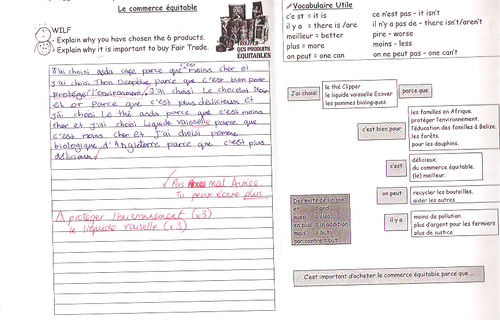 Le commerce équitable
WILF
- Explain why you have chosen the 6 products.
- Explain why it is important to buy Fair Trade.
TROUVER
DES PRODUITS
ÉQUITABLES
J'ai choisi asda café parce que c'est moins cher et
j'ai choisi Thon Deepblue parce que c'est bien pour
protéger l'environment. J'ai choisi Le chocolat Noir
et or parce que c'est plus délicieux et
j'ai choisi Le thé asda parce que c'est moins
cher et j'ai choisi Liquide vaisselle parce que
c'est moins cher et J'ai choisi pomme
biologique d'Angleterre parce que c'est plus
délicieux
Pas mal
Tu peux écrire plus
protéger l'environnement (x3)
le liquide vaiselle (x3)
Vocabulaire Utile
c'est = it is
il y a = there is /are
meilleur = better
plus = more
on peut = one can
ce n'est pas - it isn't
il n'y a pas de - there isn't/aren't
pire - worse
moins - less
on ne peut pas - one can't
J'ai choisi
le thé Clipper
le liquide vaisselle Ecover
les pommes biologiques
parce que
c'est bien pour
les familles en Afrique.
protéger l'environnement.
l'éducation des familles à Belize.
les forêts.
pour les dauphins.
c'est
délicieux.
du commerce équitable.
(le) meilleur.
on peut
recycler les bouteilles.
aider les autres
Des mots de liaison
et = and
aussi = also
en plus = in addition
mais = but
par contre = but
il y a
moins de pollution
plus d'argent pour les fermiers
plus de justice
C'est important d'acheter le commerce équitable parce que ...